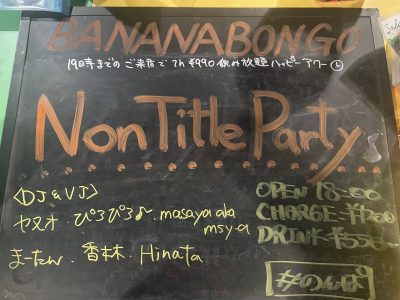 BANANABONGO
19時までのご来店で 2h ¥990 飲み放題 ハッピーアワー
Non Title Party
<DJ&VJ>
ヤヌオ ぴろぴろ♪. masaya aka
msy-a
まーたん. 香林. Hinata
OPEN 18:00
CHARGE ¥1200
DRINK ¥550
#のんぱ